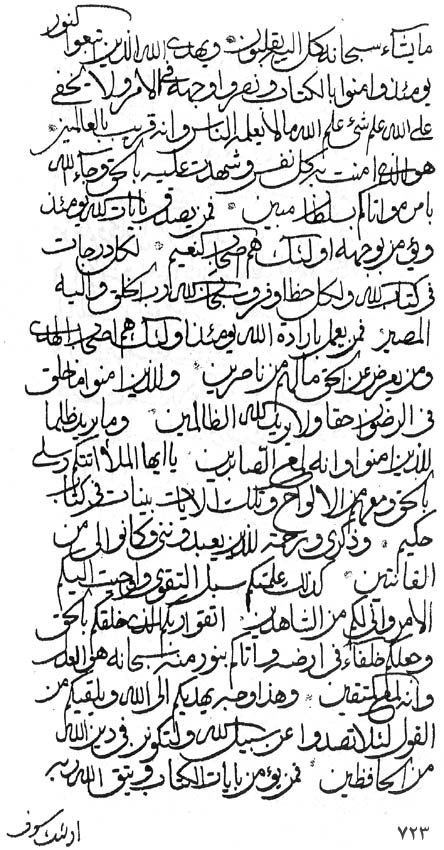 كنور
ما يشاء سبحانه كل اليه يقلبون ويهدى الله الذين تبعوا
يومئذ وامنوا بالكتاب ونصروا وجهه فى الامر ولا يخفى
على الله علم شئ علم الله ما لا يعلمه الناس وانه قريب بالعالمين
هو الذى امنت به كل نفس وشهدت عليه بالحق وجاء الله
بامر واتاكم بسلطان مبين فمن يصدق بايات الله يومئذ
ويؤمن بوجهه اولئك هم اصحاب النعيم لكل درجات
فى كتاب الله ولكل حظ اوفر وسبحان الله رب الخلق واليه
المصير فمن يعمل بارادة الله يومئذ اولئك هم اصحاب الهدى
ومن يعرض عن الحق ماله من ناصرين والذين امنوا خلق
فى الرضوان حقا ولا يزيد الله الظالمين وما يريد ظلما
للذين امنوا وانه لمع الصابرين يا ايها الملأ اتتكم رسلى
بالحق ومعهم من الالواح وتلك الايات بينات فى كتاب
حكيم وذكرى ورحمة للذين يعبدوننى وكانوا لى من
القانتين كذلك علمتكم سبل التقوى واوحيت اليكم
الامر وانى لكم من الشاهدين اتقوا ربكم الذى خلقكم بالحق
وجعلكم خلفاء فى ارضه واتاكم بنور منه سبحانه هو العدل
وانه لمع المتقين وهذا وجه يهديكم الى الله ويلقيكم من
القول لئلا تصدوا عن سبيل الله ولتكونن فى دين الله
من الحافظين فمن يؤمن بايات الكتاب ويتق الله ربه
اولئك سوف
٧٢٣